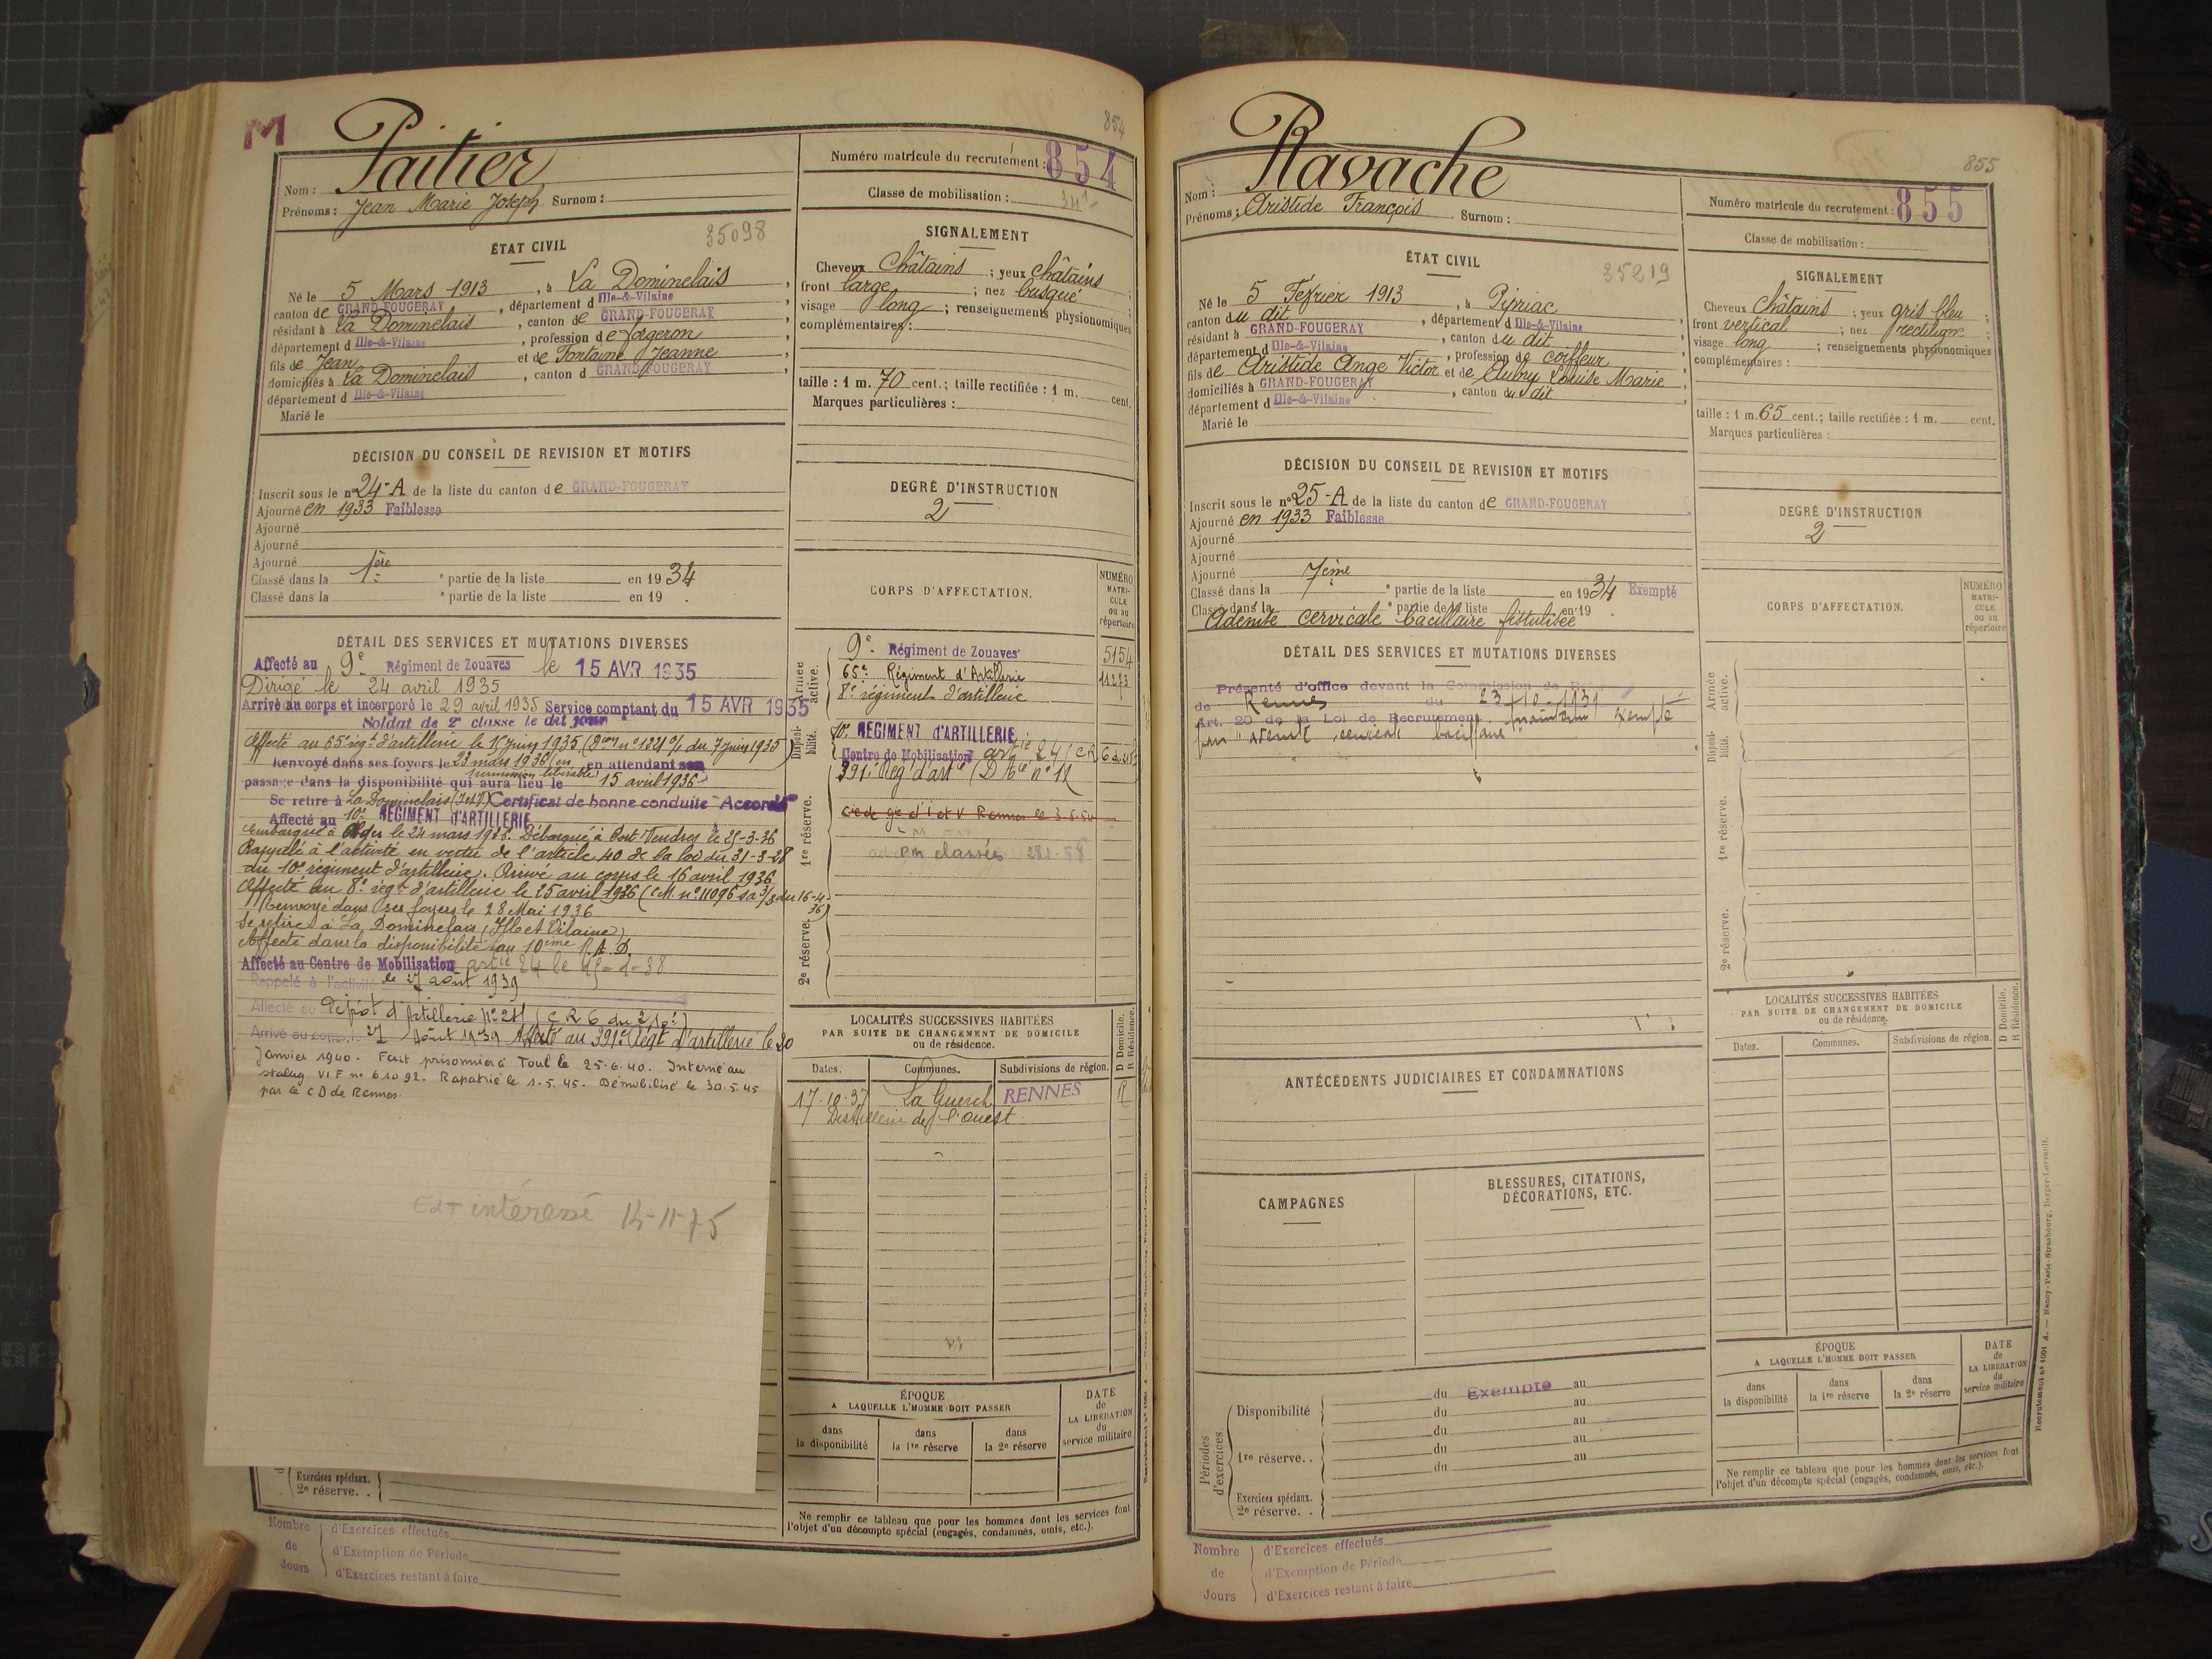 M
854
Paitier
Nom :
Prénoms : Jean Marie Joseph Surnom :
Numéro matricule du recrutement : 854
Classe de mobilisation :
ÉTAT CIVIL
35098
Né le 5 Mars 1913, à La Dominelais,
canton de GRAND-FOUGERAY, département d Ille-&-Vilaine
résidant à La Dominelais, canton de GRAND-FOUGERAY
département d Ille-&-Vilaine, profession de forgeron
fils de Jean et de Fontaine Jeanne,
domiciliés à La Dominelais, canton d GRAND-FOUGERAY,
département d Ille-&-Vilaine
Marié le
SIGNALEMENT
Cheveux Châtains ; yeux châtains
front large ; nez busqué ;
visage long ; renseignements physionomiques
complémentaires :
taille : 1 m. 70 cent.; taille rectifiée : 1 m. cent.
Marques particulières :
DÉCISION DU CONSEIL DE REVISION ET MOTIFS
Inscrit sous le n° 24-A de la liste du canton de GRAND-FOUGERAY
Ajourné en 1933 Faiblesse
Ajourné
Ajourné
Ajourné
Classé dans la 1ère partie de la liste en 1934
Classé dans la e partie de la liste en 19 .
DEGRÉ D'INSTRUCTION
2
DÉTAIL DES SERVICES ET MUTATIONS DIVERSES
Affecté au 9e Régiment de Zouaves le 15 AVR 1935
Dirigé le 24 avril 1935
Arrivé au corps et incorporé le 29 avril 1935 Service comptant du 15 AVR 1935
Soldat de 2e classe le dit jour
Affecté au 65e régt d'artillerie le 15 juin 1935 (Don n° 1321 0/1 du 7 juin 1935)
Renvoyé dans ses foyers le 23 mars 1936 (en en attendant son
permission libérable)
passage dans la disponibilité qui aura lieu le 15 avril 1936
Se retire à La Dominelais (I et V) Certificat de bonne conduite "Accordé"
Affecté au 10e REGIMENT D'ARTILLERIE
Embarqué à Alger le 24 mars 1936. Débarqué à Port-Vendres le 25-3-36
Rappelé à l'activité en vertu de l'article 40 de la loi du 31-3-28
du 10e régiment d'artillerie. Arrivé au corps le 16 avril 1936
Affecté au 8e régt d'artillerie le 25 avril 1936 (C.M. n° 11096 du 16-4-
36)
Renvoyé dans ses foyers le 28 Mai 1936
Se retire à La Dominelais (Ille et Vilaine)
Affecté dans la disponibilité au 10ème R.A.D.
Affecté au Centre de Mobilisation artie 24 le 15-1-38
Rappelé à l'activité le 27 août 1939
Affecté au Dépôt d'Artillerie n° 211 (C R 6 du
Arrivé au corps le 27 Août 1939 Affecté au 391e Régt d'artillerie le 20
Janvier 1940. Fait prisonnier à Toul le 25-6-40. Interné au
stalag VI F n° 61092. Rapatrié le 1-5-45. Démobilisé le 30-5-45
par le C D de Rennes.
Ext intéressé 14-11-75
CORPS D'AFFECTATION.
NUMÉRO MATRICULE ou au répertoire
Armée active.
9e Régiment de Zouaves 5154
65e Régiment d'Artillerie 11233
8e régiment d'artillerie
Disponibilité.
10e REGIMENT D'ARTILLERIE
Centre de Mobilisation artie 24 (CR
391e Rég d'artie (D Aie n° 11
1re réserve.
Cie de gie d'I et V Rennes le 3.6.54
pm classés 28-1-58
2e réserve.
LOCALITÉS SUCCESSIVES HABITÉES
PAR SUITE DE CHANGEMENT DE DOMICILE
ou de résidence.
Dates. Communes. Subdivisions de région. D Domicile. R Résidence.
17.10.37 La Guerch RENNES R
Distillerie de l'ouest
ÉPOQUE
A LAQUELLE L'HOMME DOIT PASSER
DATE de LA LIBÉRATION du service militaire
dans la disponibilité
dans la 1re réserve
dans la 2e réserve
Ne remplir ce tableau que pour les hommes dont les services font
l'objet d'un décompte spécial (engagés, condamnés, omis, etc.).
Exercices spéciaux.
2e réserve. .
Nombre de Jours
d'Exercices effectués
d'Exemption de Période
d'Exercices restant à faire
855
Ravache
Nom :
Prénoms : Aristide François Surnom :
Numéro matricule du recrutement : 855
Classe de mobilisation :
ÉTAT CIVIL
35219
Né le 5 Février 1913, à Pipriac
canton du dit, département d Ille-&-Vilaine
résidant à GRAND-FOUGERAY, canton du dit
département d Ille-&-Vilaine, profession de coiffeur
fils de Aristide Ange Victor et de Aubry Louise Marie,
domiciliés à GRAND-FOUGERAY, canton du dit
département d Ille-&-Vilaine
Marié le
SIGNALEMENT
Cheveux Châtains ; yeux gris bleu ;
front vertical ; nez rectiligne ;
visage long ; renseignements physionomiques
complémentaires :
taille : 1 m. 65 cent.; taille rectifiée : 1 m. cent.
Marques particulières :
DÉCISION DU CONSEIL DE REVISION ET MOTIFS
Inscrit sous le n° 25-A de la liste du canton de GRAND-FOUGERAY
Ajourné en 1933 Faiblesse
Ajourné
Ajourné
Ajourné
Classé dans la 7ème partie de la liste en 1934 Exempté
Classé dans la e partie de la liste en 19 .
Adénite cervicale bacillaire fistulisée
DEGRÉ D'INSTRUCTION
2
DÉTAIL DES SERVICES ET MUTATIONS DIVERSES
Présenté d'office devant la Commission de
de Rennes du 23-10-1939
Art. 20 de la Loi de Recrutement. maintenu exempté
pour "adénite cervicale bacillaire"
CORPS D'AFFECTATION.
NUMÉRO MATRICULE ou au répertoire
Armée active.
Disponibilité.
1re réserve.
2e réserve.
ANTÉCÉDENTS JUDICIAIRES ET CONDAMNATIONS
CAMPAGNES
BLESSURES, CITATIONS, DÉCORATIONS, ETC.
LOCALITÉS SUCCESSIVES HABITÉES
PAR SUITE DE CHANGEMENT DE DOMICILE
ou de résidence.
Dates. Communes. Subdivisions de région. D Domicile. R Résidence.
Périodes d'exercices.
Disponibilité
du Exempté au
du au
du au
1re réserve. .
du au
du au
Exercices spéciaux.
2e réserve. .
ÉPOQUE
A LAQUELLE L'HOMME DOIT PASSER
DATE de LA LIBÉRATION du service militaire
dans la disponibilité
dans la 1re réserve
dans la 2e réserve
Ne remplir ce tableau que pour les hommes dont les services font
l'objet d'un décompte spécial (engagés, condamnés, omis, etc.).
Recrutement n° 1091 A. — Nancy-Paris-Strasbourg, Berger-Levrault.
Nombre de Jours
d'Exercices effectués
d'Exemption de Période
d'Exercices restant à faire